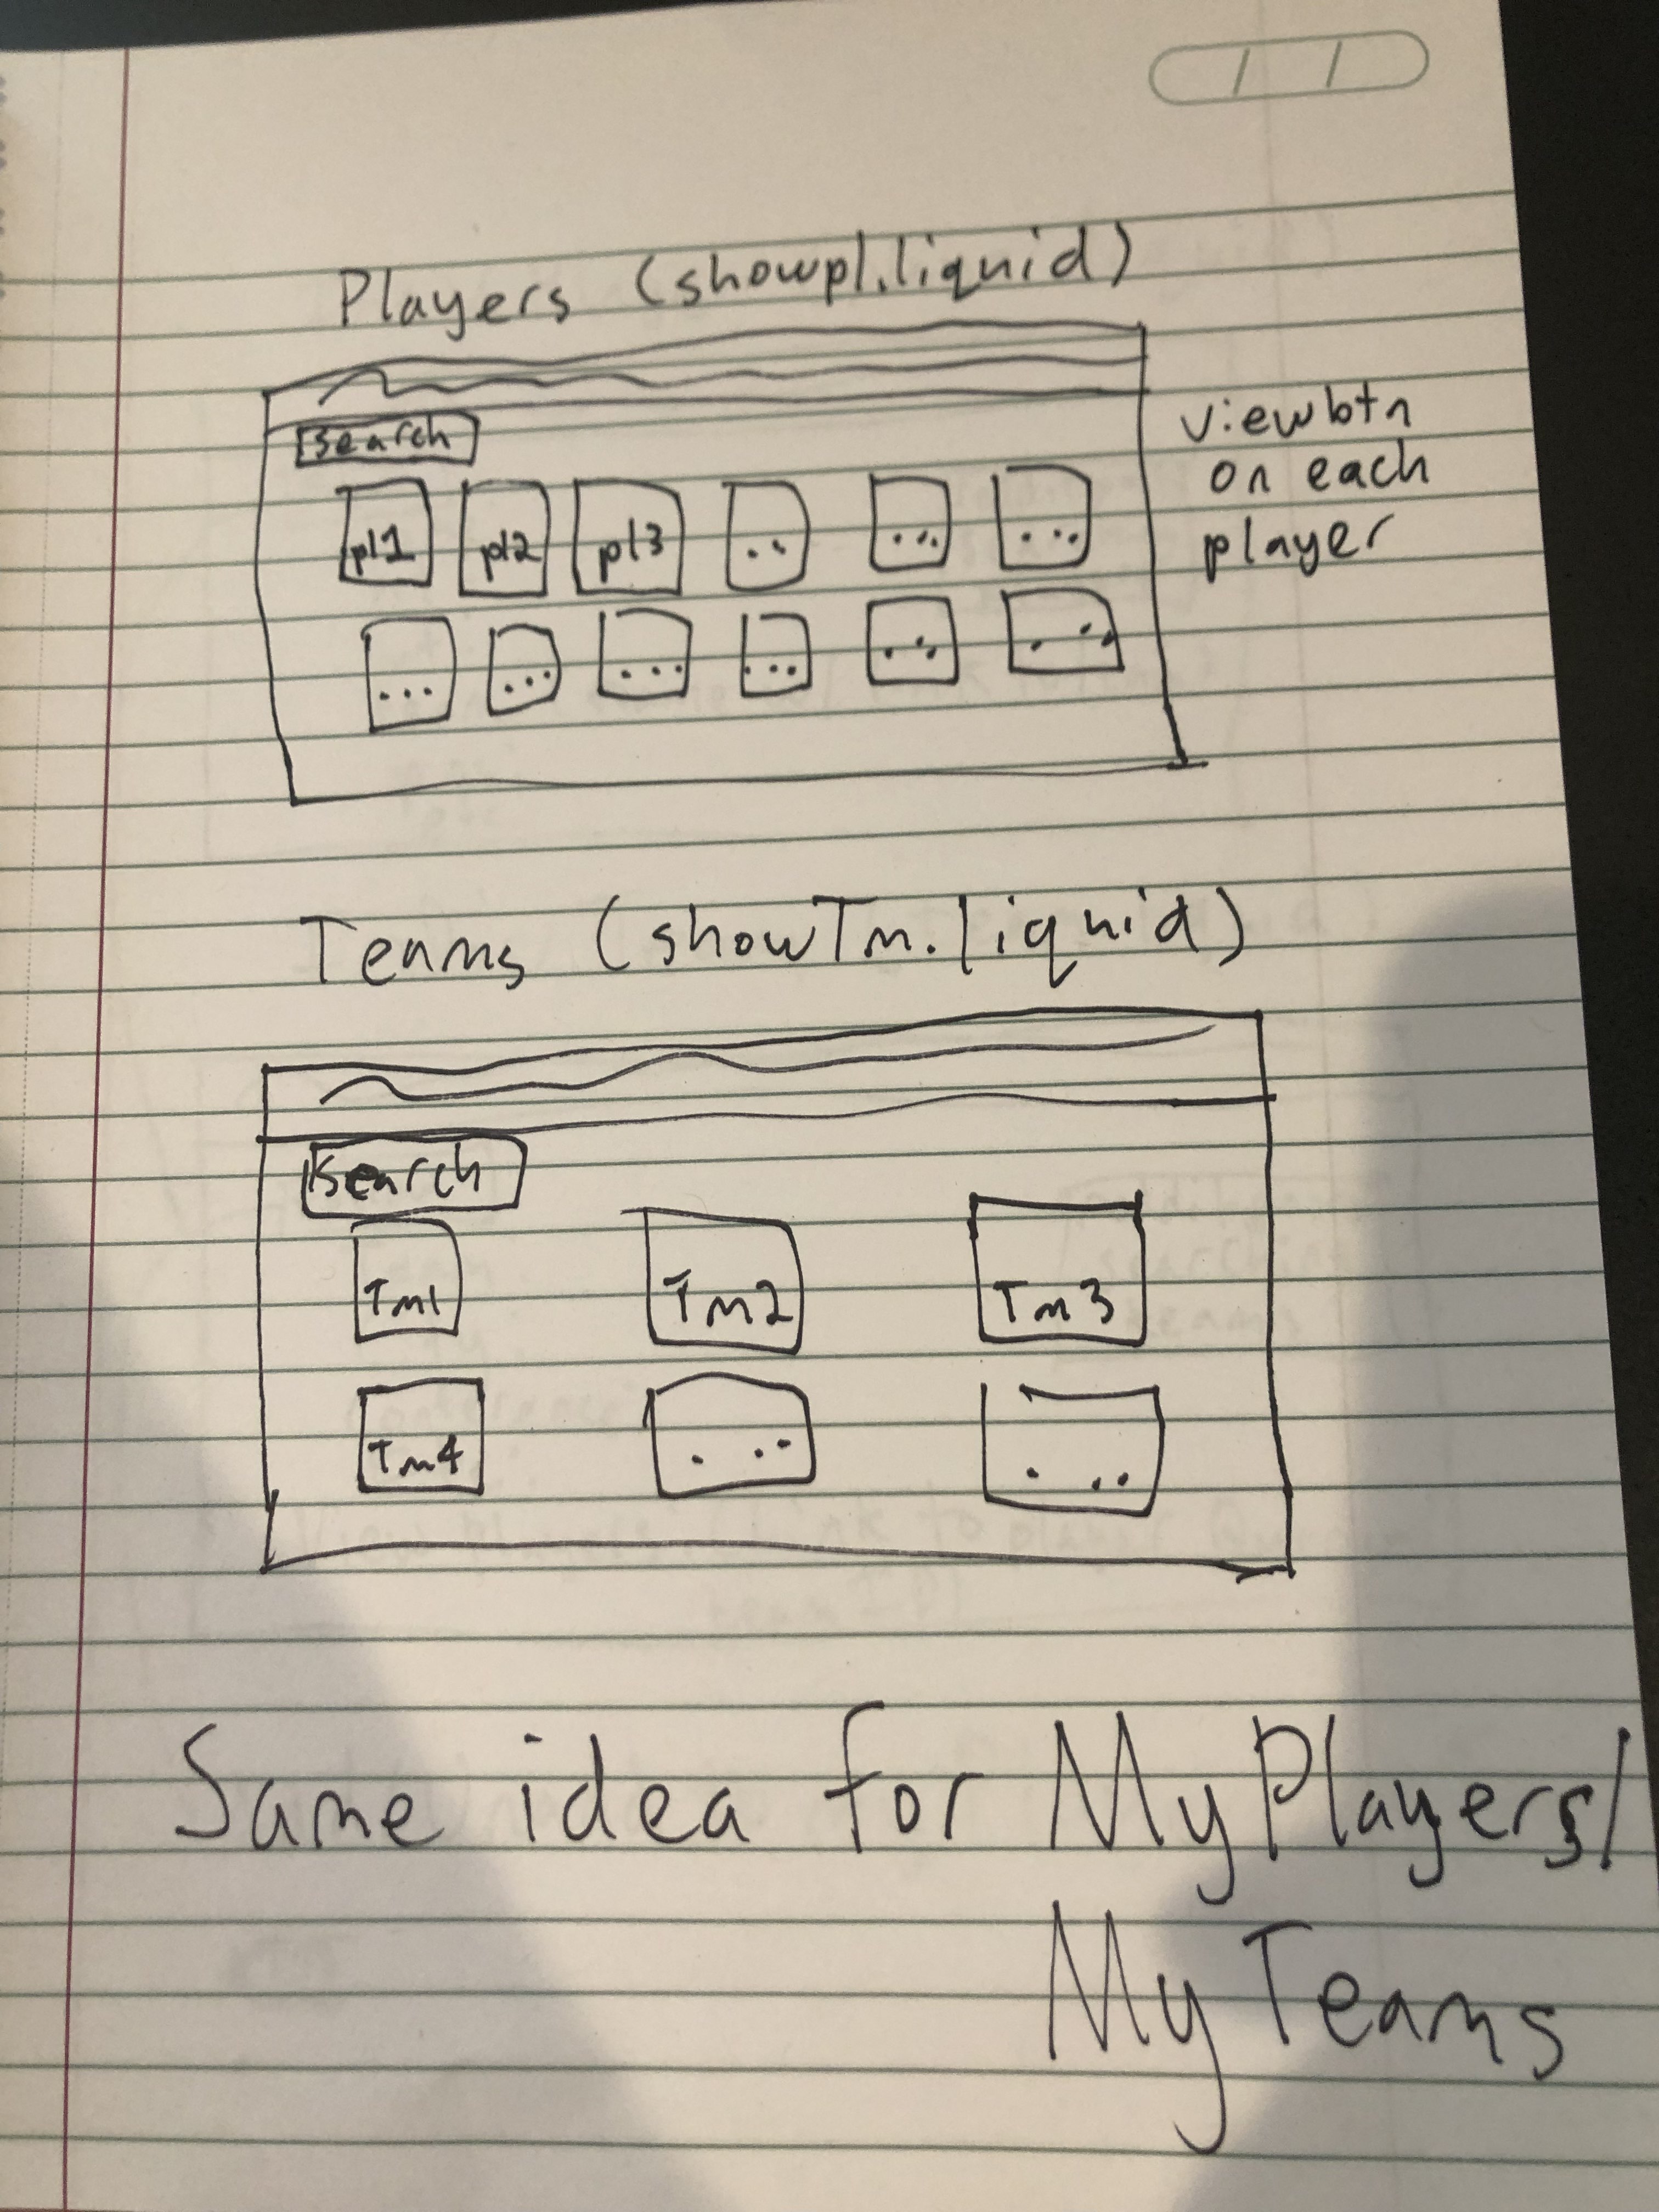 Players (showpl.liquid)
Search
pl1 pl2 pl3 .. ... ...
... ... ... ... ... ...
viewbtn
on each
player
Teams (showTm.liquid)
Search
Tm1 Tm2 Tm3
Tm4 ... ...
Same idea for MyPlayers/
MyTeams